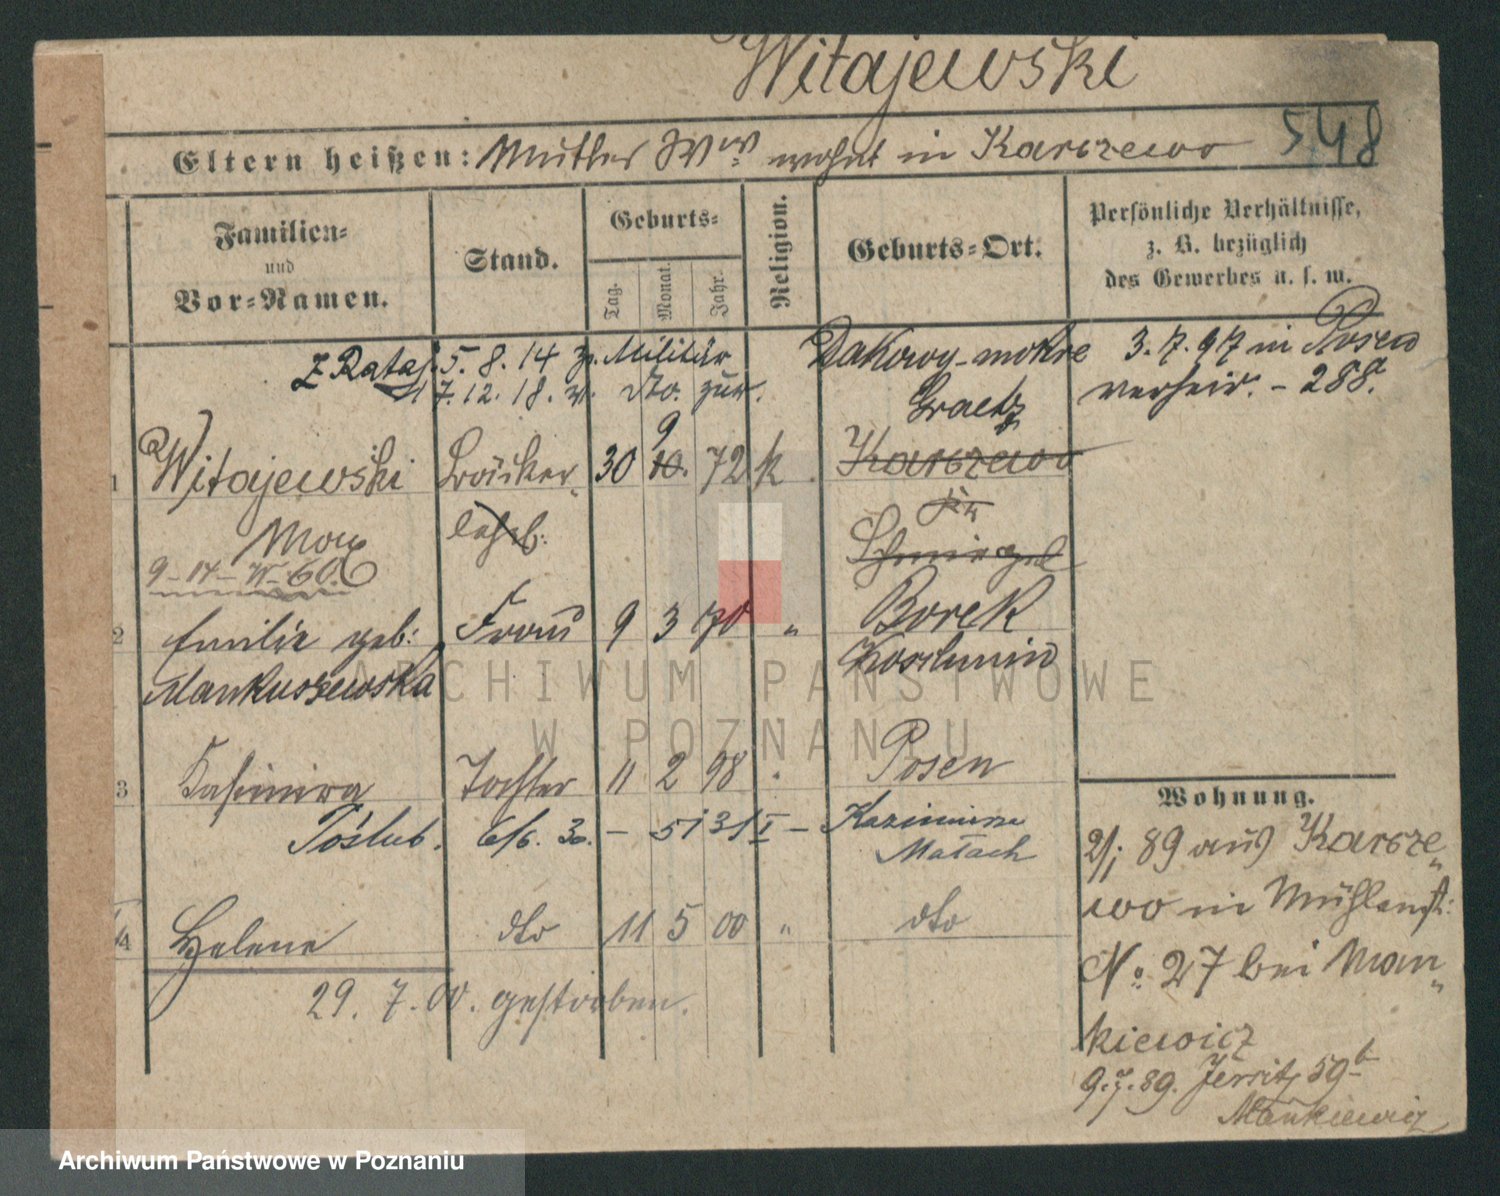 Witajewski
548
Eltern heißen: Mutter Ww. wohnt in Karszewo
Familien-
und
Vor-Namen.
Stand.
Geburts-
Tag.
Monat.
Jahr.
Religion.
Geburts-Ort.
Persönliche Verhältnisse,
z. B. bezüglich
des Gewerbes u. s. w.
z Rataj. 5. 8. 14 z. Militär
17. 12. 18. v. dto. zur.
Dakowy-mokre
Graetz
3. 7. 97 in Posen
verheir. - 288.
1 Witajewski Bäcker 30 9 10. 72 k Karszewo
Max lehrl.
Schmiegel
2 Emilie geb: Frau 9 3 70 " Borek
Mankuszewska Koschmin
3 Kasimira Tochter 11 2 98 " Posen
Poślub. 6/6. 30. – 51 31 I – Kazimierz
Małach
4 Helene dto 11 5 00 " dto
29. 7. 00. gestorben.
Wohnung.
2/1 89 aus Karsze„
wo in Mühlenst:
No. 27 bei Man„
kiewicz
9. 7. 89. Jersitz 59b
Mankiewicz
ARCHIWUM PAŃSTWOWE
W POZNANIU
Archiwum Państwowe w Poznaniu